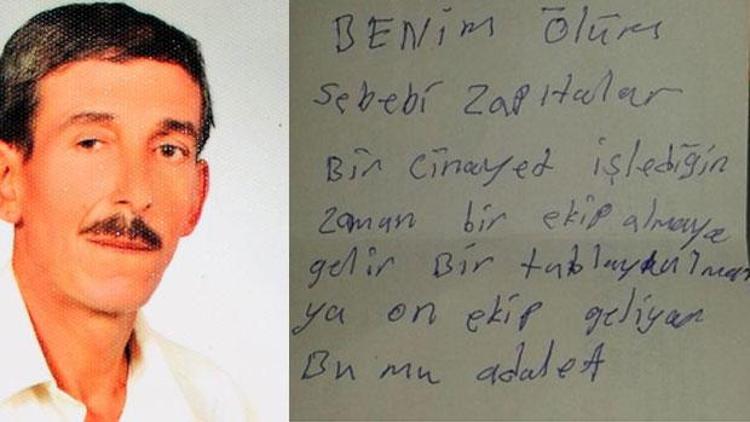 BENİM ÖLÜM
Sebebi Zapıtalar
Bir Cinayet işlediğin
zaman bir ekip almaya
gelir Bir
ya on ekip geliyar
Bu mu adalet